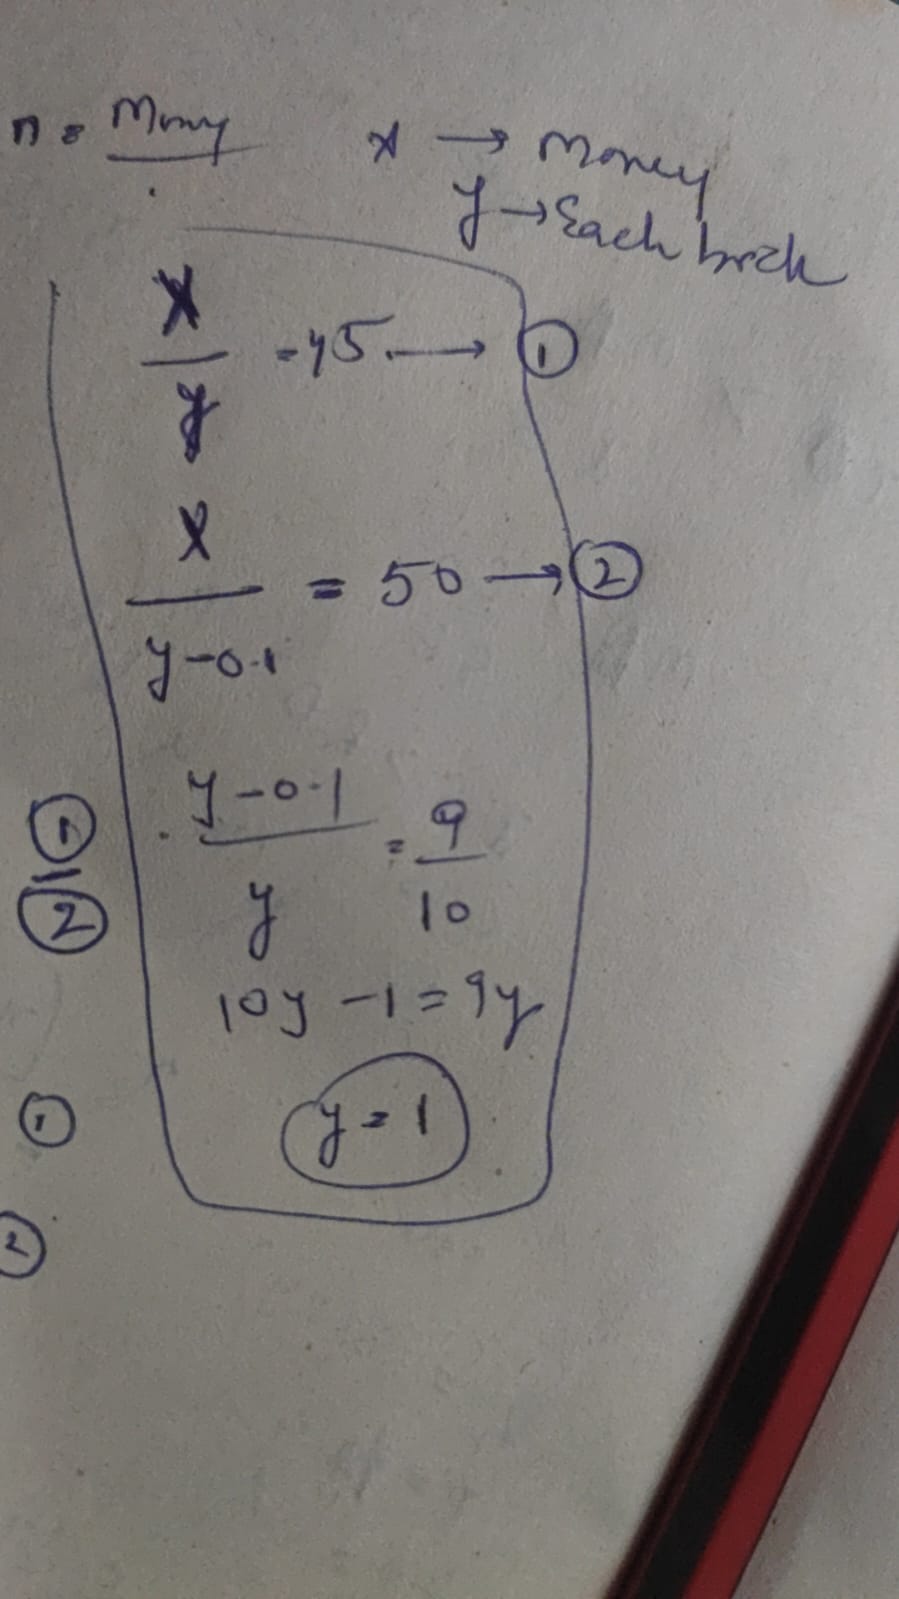 n = Money x → Money
y → Each book
x/y = 45 → ①
x/(y-0.1) = 50 → ②
①/② (y-0.1)/y = 9/10
10y - 1 = 9y
① y = 1
②